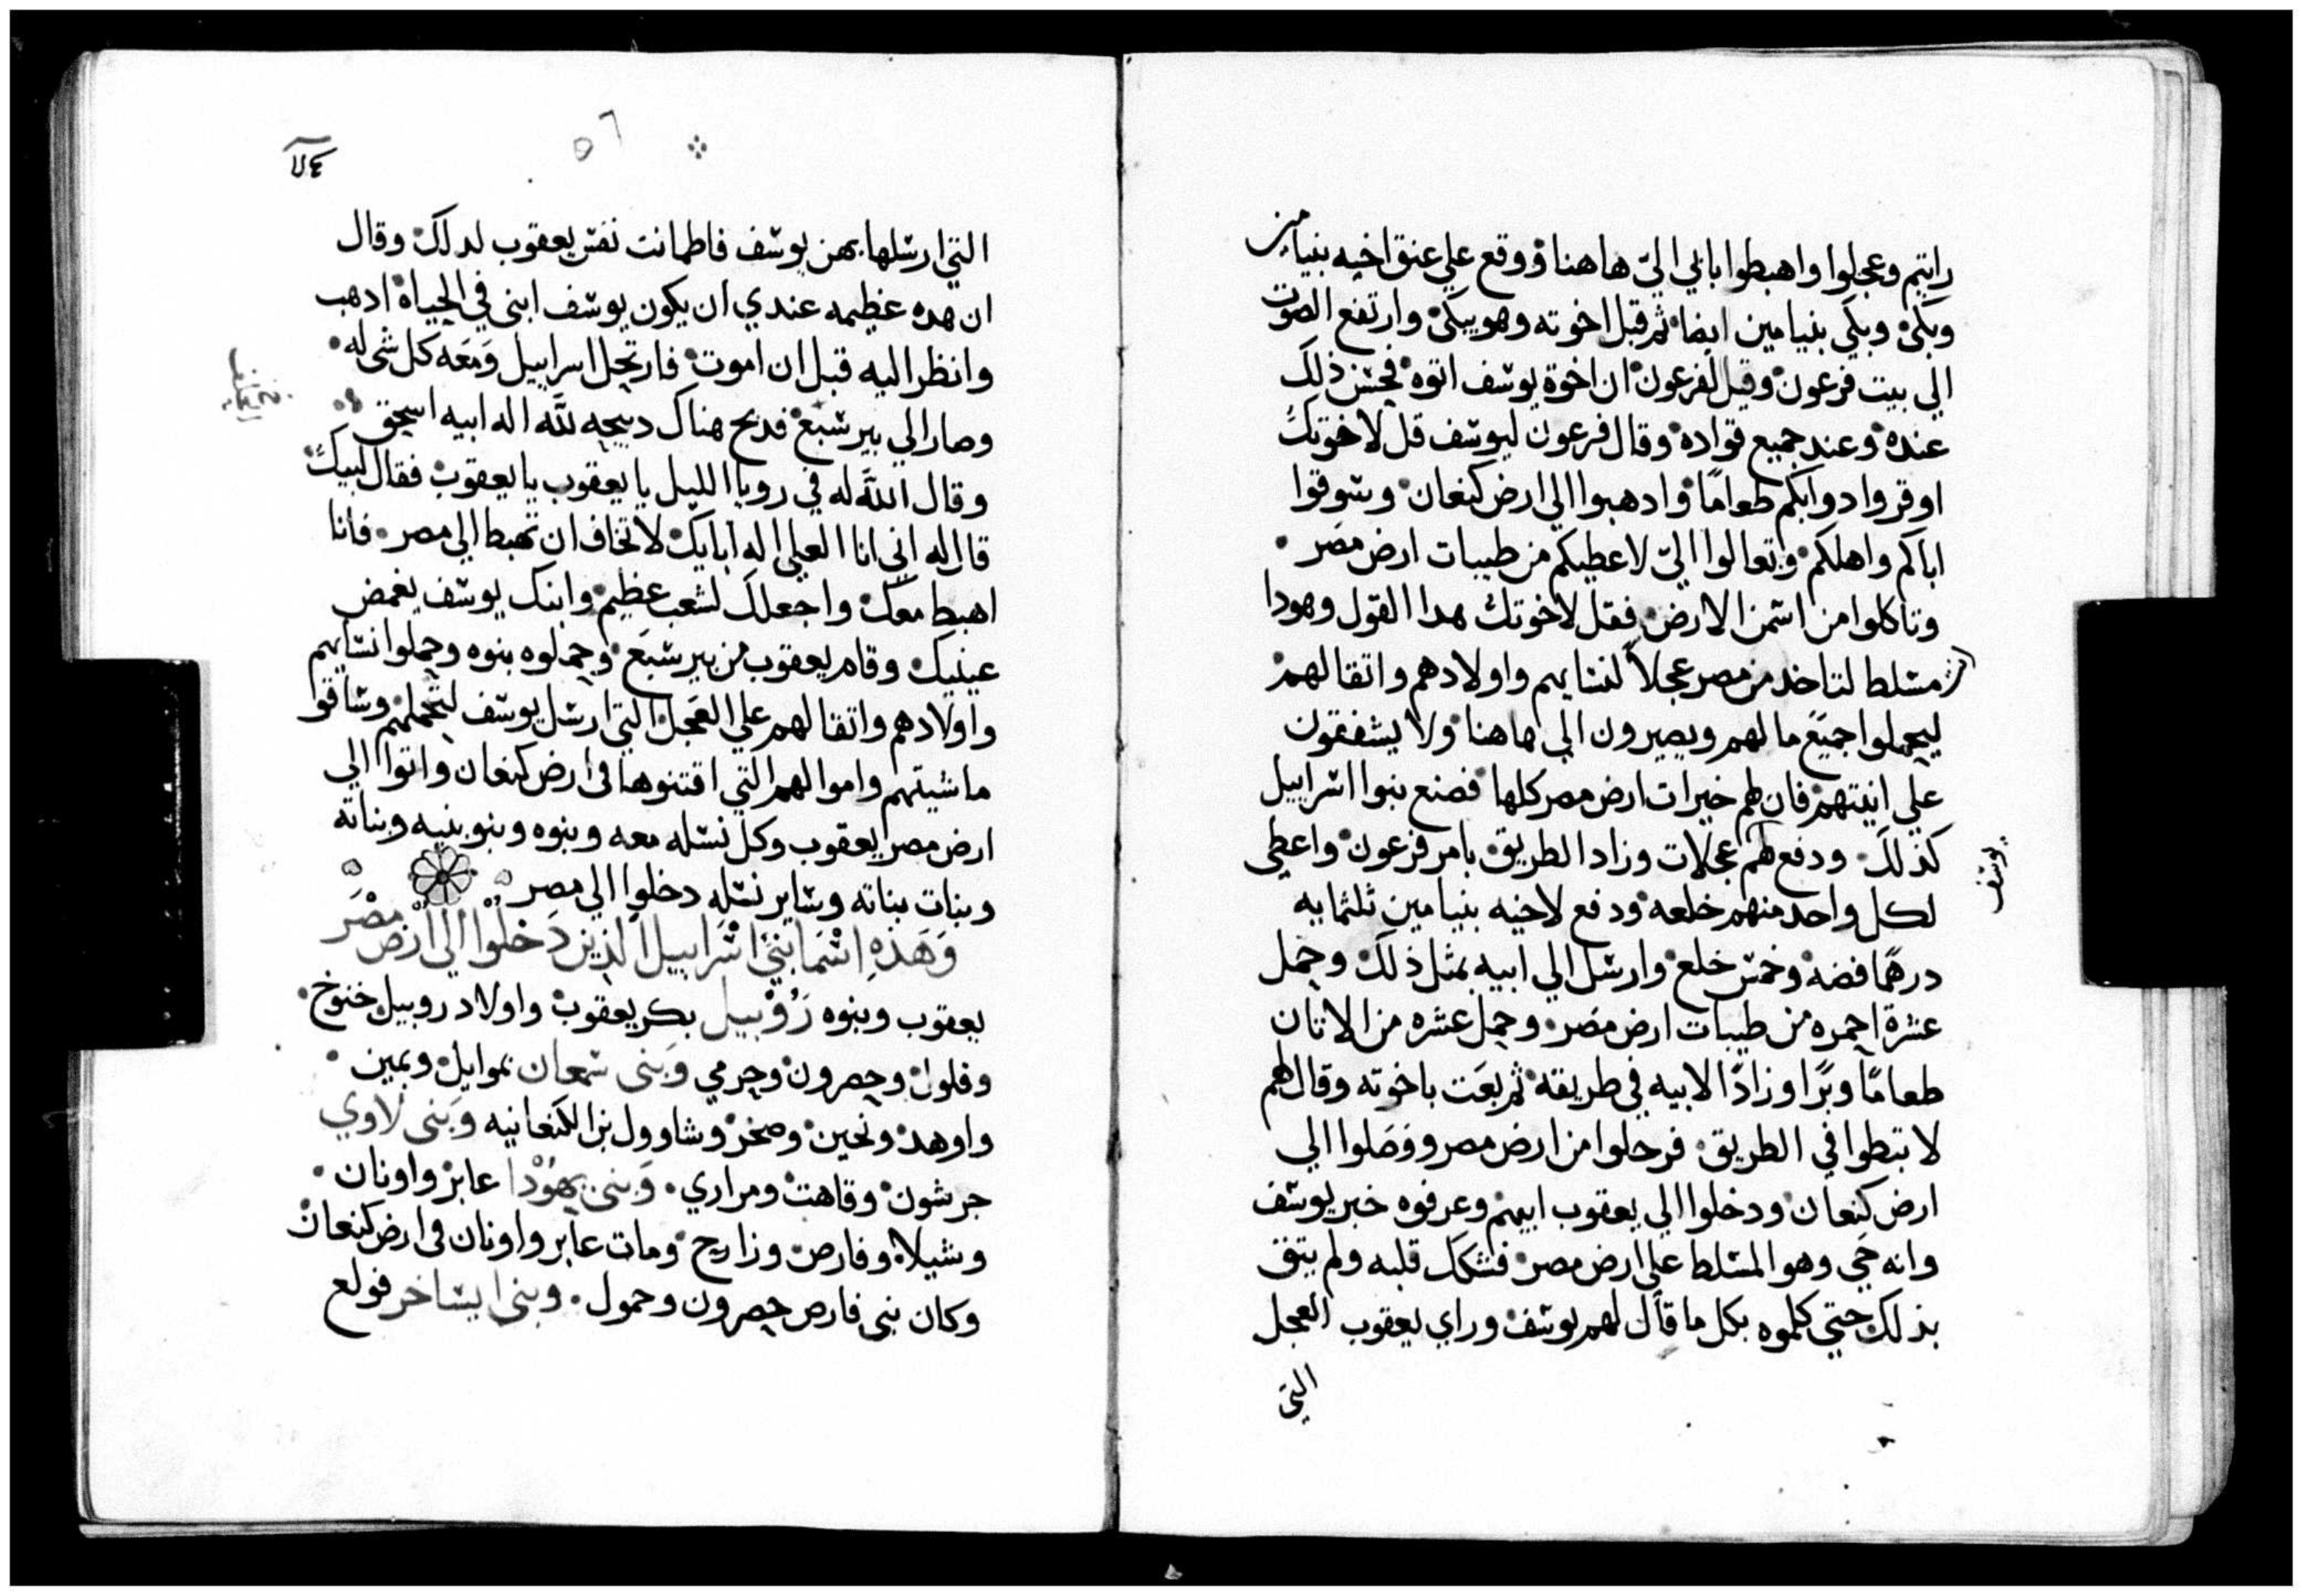 رايتم وعجلوا واهبطوا بابي اليّ هاهنا ووقع علي عنق اخيه بنيامين
وبكىٰ وبكي بنيامين ايضا ثم قبل اخوته وهو يبكىٰ وارتفع الصوت
الي بيت فرعون وقيل لفرعون ان اخوة يوسف اتوه فحسن ذلك
عنده وعند جميع قواده وقال فرعون ليوسف قل لاخوتك
اوقروا دوابكم طعامًا وادهبوا الي ارض كنعان وسوقوا
اباكم واهلكم وتعالوا اليّ لاعطيكم من طيبات ارض مصر
وتاكلوا من اسمن الارض فقل لاخوتك هدا القول وهودا
مسلط لتاخد من مصر عجلاً لنسايهم واولادهم واتقالهم
ليحملوا جميع مالهم ويصيرون الي هاهنا ولا يشفقون
علي انيتهم فان لهم خيرات ارض مصر كلها فصنع بنوا اسراييل
كذلك ودفع لهم عجلات وزاد الطريق بامر فرعون واعطي
يوسف
لكل واحد منهم خلعه ودفع لاخيه بنيامين ثلثمايه
درهمًا فضه وخمس خلع وارسل الي ابيه بمثل ذلك وحمل
عشرة احمره من طيبات ارض مصر وحمل عشره من الاتان
طعامًا وبرًا وزادًا لابيه في طريقه ثم بعت باخوته وقال لهم
لا تبطوا في الطريق فرحلوا من ارض مصر ووصلوا الي
ارض كنعان ودخلوا الي يعقوب ابيهم وعرفوه خبر يوسف
وانه حي وهو المسلط علي ارض مصر فشكك قلبه ولم يتق
بذلك حتي كلموه بكل ما قال لهم يوسف وراي يعقوب العجل
التي
٥٦
التي ارسلها بهن يوسف فاطمانت نفس يعقوب لدلك وقال
ان هده عظيمه عندي ان يكون يوسف ابني في الحياة ادهب
وانظر اليه قبل ان اموت فارتحل اسراييل ومعه كل شي له
وصار الي بير شبع فدبح هناك دبيحه للّه اله ابيه اسحق
وقال اللّه له في رويا الليل يا يعقوب يا يعقوب فقال لبيك
قال له اني انا العلي اله ابايك لا تخاف ان تهبط الي مصر فانا
اهبط معك واجعلك لشعب عظيم وابنك يوسف يغمض
عينيك وقام يعقوب من بير شبع وحملوه بنوه وحملوا نسايهم
واولادهم واتقالهم علي العجل التي ارسل يوسف لتحملهم وساقوا
ماشيتهم واموالهم التي اقتنوها في ارض كنعان واتوا الي
ارض مصر يعقوب وكل نسله معه وبنوه وبنو بنيه وبناته
وبنات بناته وساير نسله دخلوا الي مصر
وَهَذِهِ اسْمَا بَنِي اسْرَاييل الذين دَخلُوا الي ارْض مِصْرَ
يعقوب وبنوه رُوْبيل بكر يعقوب واولاد روبيل خنوخ
وفلوا وحصرون وحرمي وَبني شمعان نموايل ويمين
واوهد ونحين وصخر وشاوول بن الكنعانيه وَبني لاوي
جرشون وقاهت ومراري وَبني يهُوْدا عابر واونان
وشيلا وفارص وزارح ومات عابر واونان في ارض كنعان
وكان بني فارص حصرون وحمول وبني ايساخر فولع